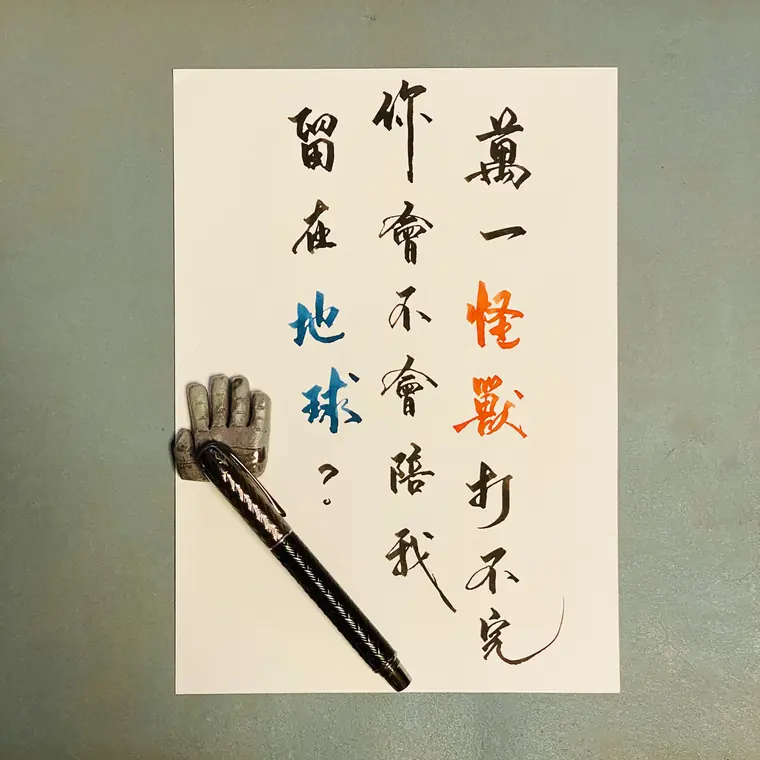 萬一怪獸打不完
你會不會陪我
留在地球？